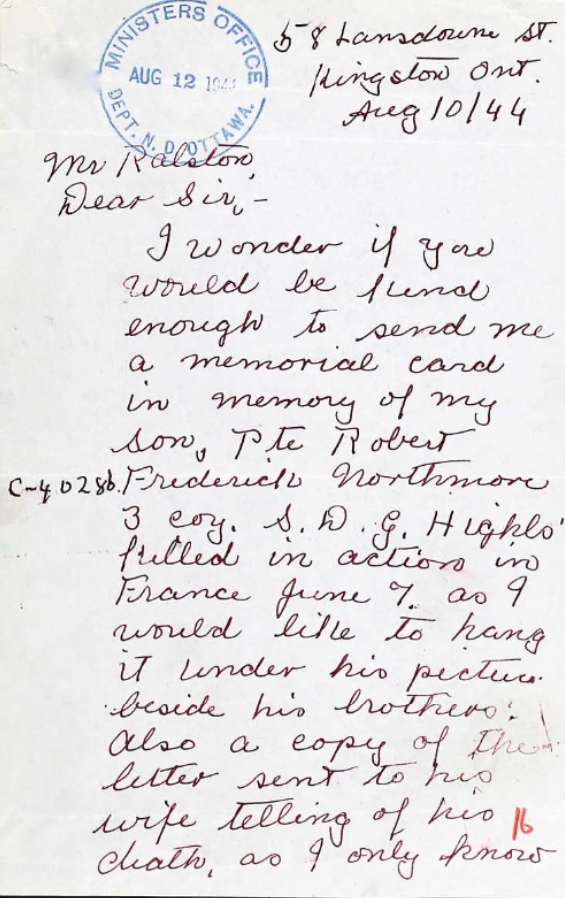 MINISTERS OFFICE
AUG 12 194
DEPT. N. D. OTTAWA.
58 Lansdowne St.
Kingston Ont.
Aug 10/44
Mr Ralston,
Dear Sir,-
I wonder if you
would be kind
enough to send me
a memorial card
in memory of my
son, Pte Robert
C-40286. Frederick Northmore
3 coy. S. D. G. Highls'
killed in action in
France June 7. as I
would like to hang
it under his picture
beside his brothers.
Also a copy of the
letter sent to his
wife telling of his
16
death, as I only know